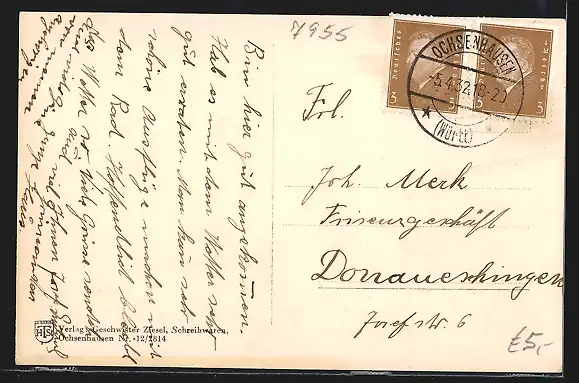 7955
Bin hier gut angekommen.
Hab es mit dem Wetter sehr
gut erraten. Man kann sehr
schöne Ausflüge machen mit
dem Rad. Hoffendlich bleibt
das Wetter so. Viele Grüsse senden
Verlag: Geschwister Ziesel, Schreibwaren,
Ochsenhausen Nr. 12/2814
Deutsches
3
3
3
OCHSENHAUSEN
5.4.32.18-20
(WÜRTT)
Frl.
Joh. Merk
Friseurgeschäft
Donaueschingen
Josefstr. 6
£5,-